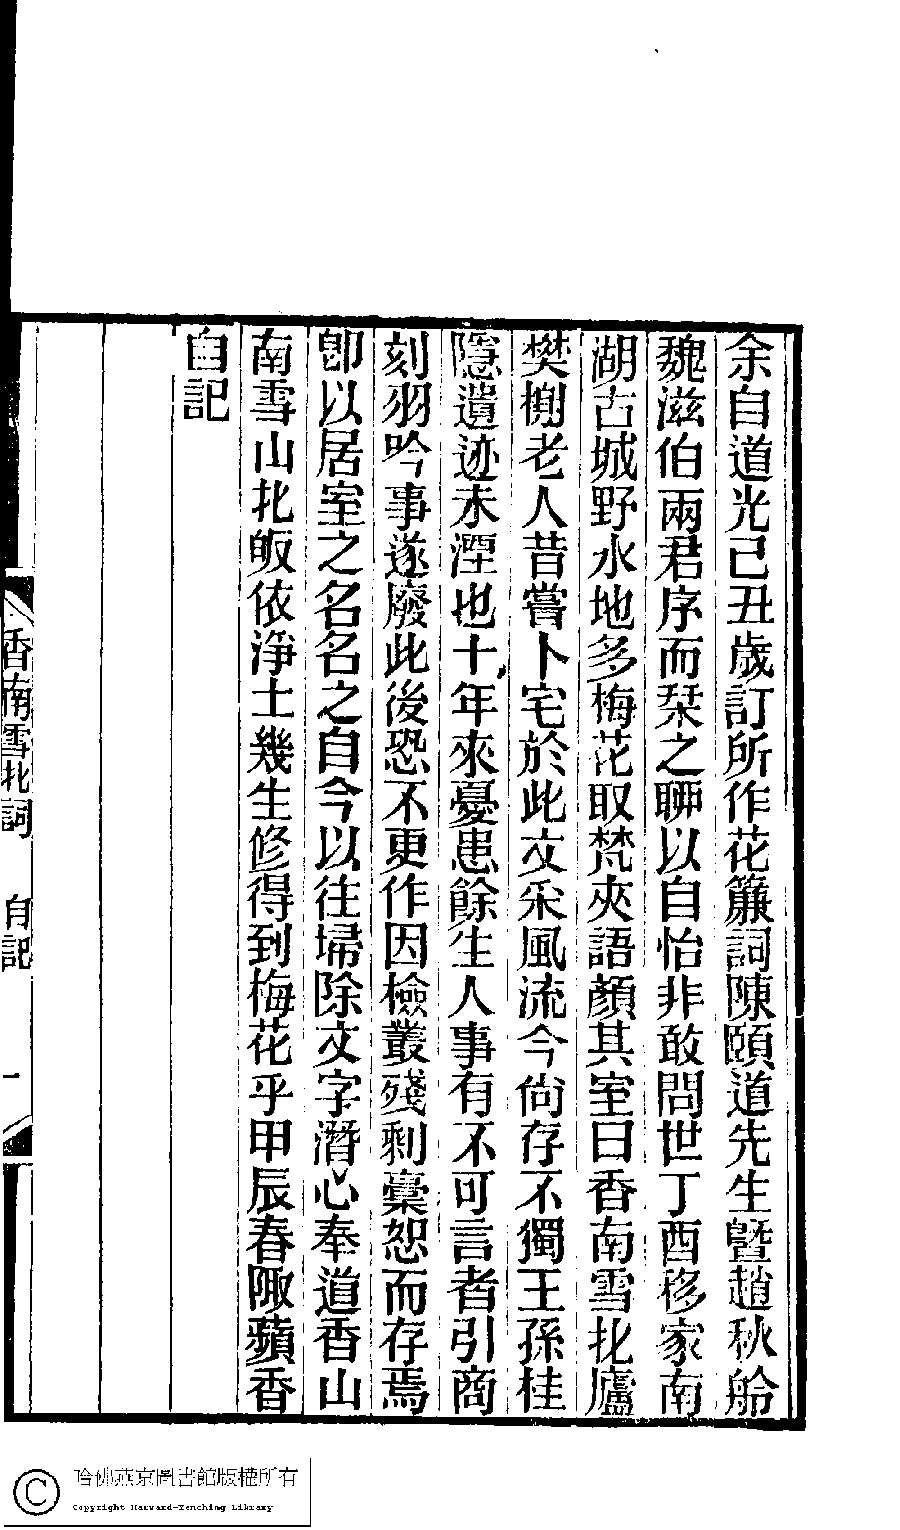 余自道光己丑歲訂所作花簾詞陳頤道先生曁趙秋舲
魏滋伯兩君序而栞之聊以自怡非敢問世丁酉移家南
湖古城野水地多梅花取梵夾語顏其室曰香南雪北廬
樊榭老人昔嘗卜宅於此文采風流今尙存不獨王孫桂
隱遺迹未湮也十年來憂患餘生人事有不可言者引商
刻羽吟事遂廢此後恐不更作因檢叢殘剩藁恕而存焉
卽以居室之名名之自今以往埽除文字潛心奉道香山
南雪山北皈依淨土幾生修得到梅花乎甲辰春陬蘋香
自記
香南雪北詞
自記
一
哈佛燕京圖書館版權所有
Copyright Harvard-Yenching Library